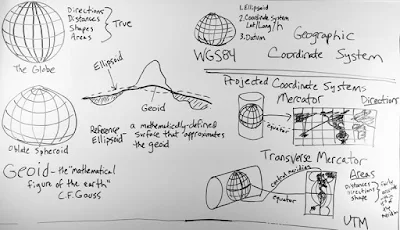 Directions
Distances
Shapes
Areas
True
The Globe
Ellipsoid
Geoid
Reference Ellipsoid
a mathematically-defined
surface that approximates
the geoid
Oblate Spheroid
Geoid - the "mathematical
figure of the earth"
C.F. Gauss
WGS84
1. Ellipsoid
2. Coordinate System
Lat/Long/h
3. Datum
Geographic
Coordinate System
Projected Coordinate Systems
Mercator
Directions
equator
Transverse Mercator
central meridian
equator
Areas
Distances
directions
shape
UTM